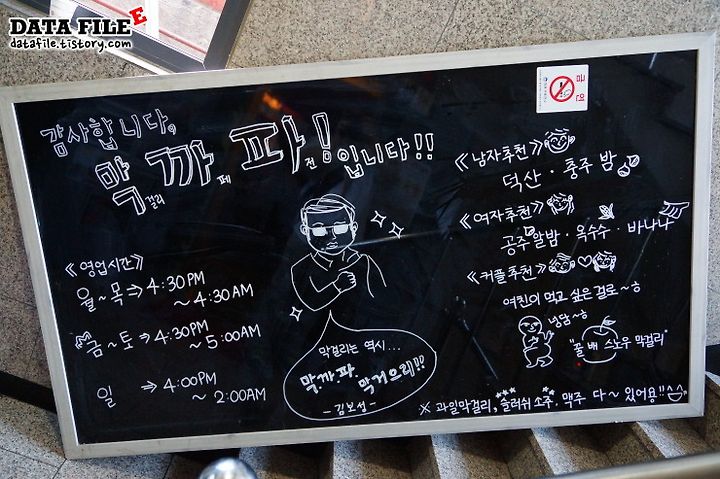 DATA FILE E
datafile.tistory.com
금연
감사합니다,
막걸리 까페 파전! 입니다!!
《영업시간》
월~목⇒ 4:30PM
~ 4:30AM
금~토⇒ 4:30PM
~ 5:00AM
일 ⇒ 4:00PM
~ 2:00AM
막걸리는 역시...
막.까.파. 막거으리!!
-김보성-
《남자추천》
덕산·충주 밤
《여자추천》
공주알밤·옥수수·바나나
《커플추천》
여친이 먹고 싶은 걸로~ㅎ
냉담~ㅎ
"꿀배 스노우 막걸리"
※ 과일막걸리, 슬러쉬 소주. 맥주 다~ 있어용!!